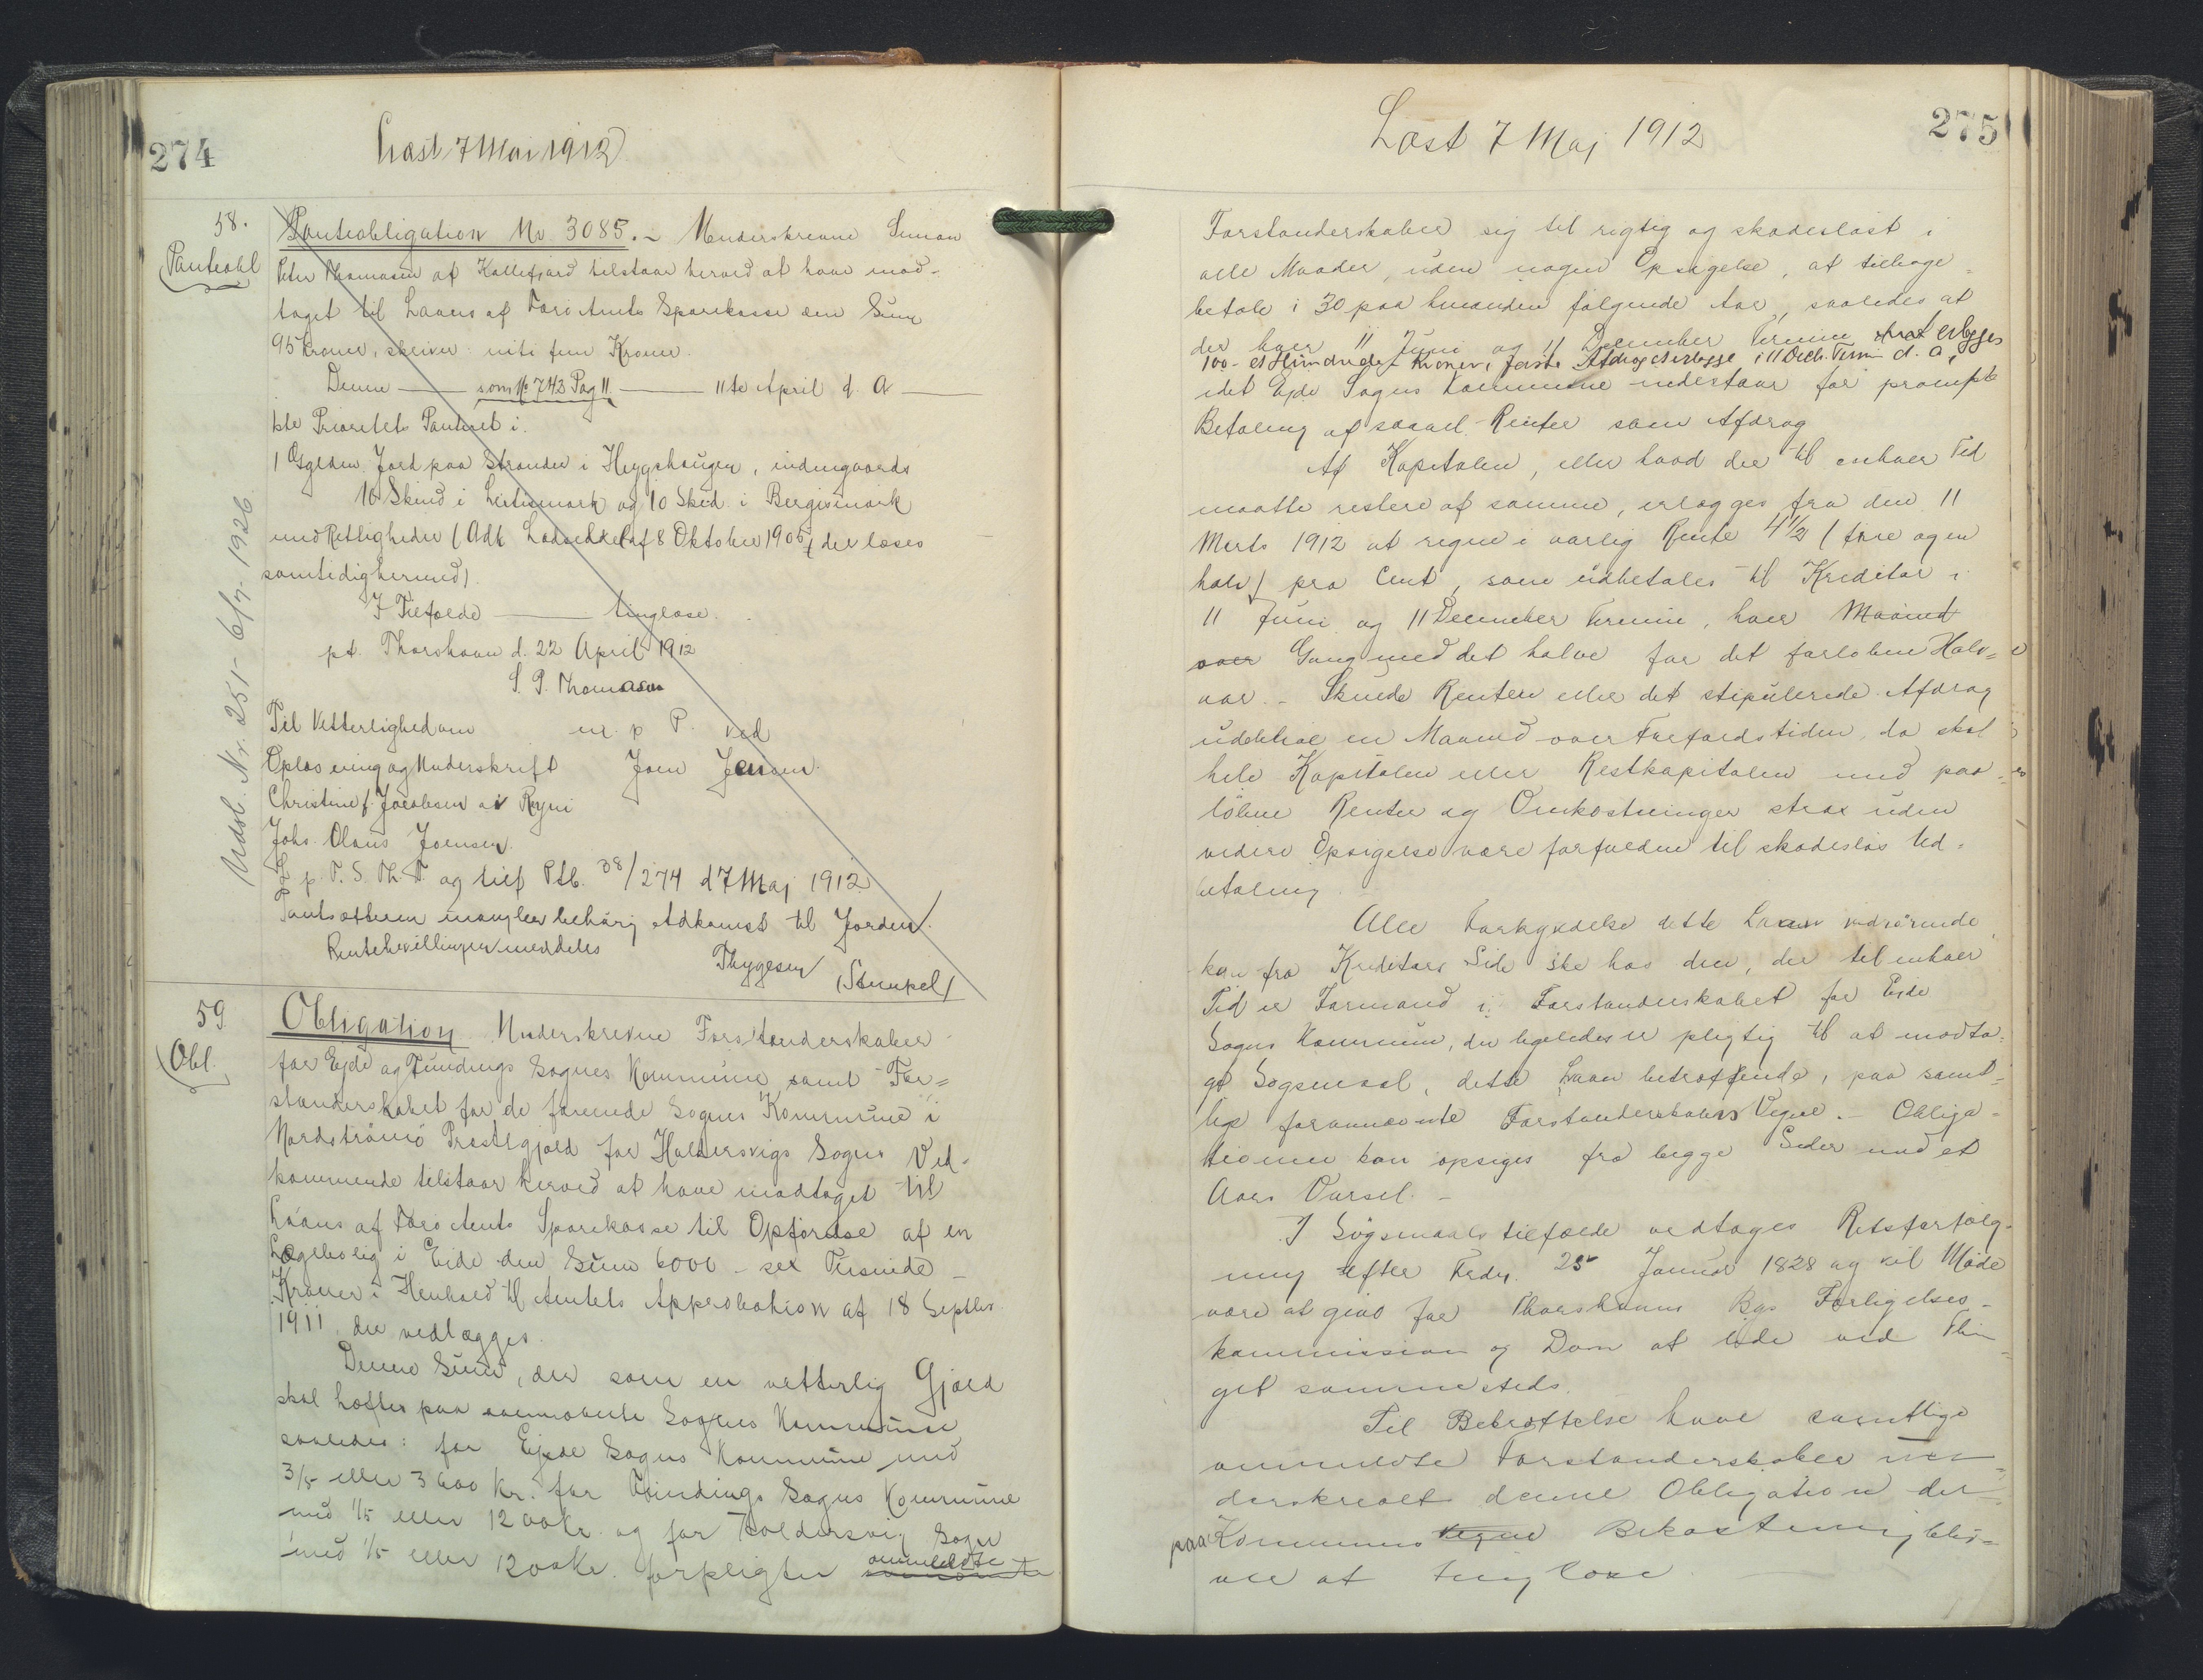 274
Læst 7 Mai 1912
58.
Panteobl
Panteobligation No 3085. – Underskrevne Simon
Peter Thomasen af Kollefjord tilstaar herved at have mod-
taget til Laans af Færø Amts Sparekasse den Sum
95 Kroner, skriver niti fem Kroner.
Denne — som No 743 Pag 11 — 11te April d. A —
ste Prioritets Panteret i.
1 Gylden Jord paa Strander i Heygshaugen, indengaards
10 Skind i Lirtismørk og 10 Skind i Bergismørk
med Rettigheder (Adk Ladseddel af 8 Oktober 1905, der læses
samtidig hermed).
I Tilfælde — tinglæse.
pt. Thorshavn d. 22 April 1912
S. P. Thomasen
Til Vitterlighed om m. p P. ved
Oplæsning og Underskrift Joen Jensen.
Christine f. Jacobsen av Ryni
Johs. Olaus Joensen.
L. p. T. S. Th. T. og tilf Ptb. 38/274 d 7 Maj 1912
Pantsætteren mangler behørig Adkomst til Jorden.
Rentebevillingen meddeles
Thygesen (Stempel)
Udsl. Nr. 251- 6/7- 1926
59
Obl.
Obligation Underskrevne Forstanderskaber
for Ejde og Funding's Sognes Kommune samt For=
standerskabet for de forenede Sognes Kommune i
Nordstrømø Præstegjæld for Haldersvigs Sogns Ved-
kommende tilstaar herved at have modtaget til
Laans af Færø Amts Sparekasse til Opførelse af en
Lægebolig i Eide den Sum 6000 – sex Tusinde –
Kroner i Henhold til Amtets Approbation af 18 Septbr.
1911, der vedlægges.
Denne Sum, der som en vitterlig Gjæld
skal hæfte paa ovennævnte Sognes Kommune
saaledes: for Ejde Sogns Kommune med
3/5 eller 3600 Kr. for Fundings Sogns Kommune
med 1/5 eller 1200 Kr. og for Haldersvig Sogn
med 1/5 eller 1200 Kr. forpligter ommeldte
275
Læst 7 Maj 1912
Forstanderskaber sig til rigtig og skadesløst i
alle Maader, uden nogen Opsigelse, at tilbage=
betale i 30 paa hinanden følgende Aar, saaledes at
der hver 11 Juni og 11 December Termin erlægges
100 - et Hundrede - Kroner, første Afdrag at erlægge i 11 Decb. Termin d. A,
idet Ejde Sogns Kommune indestaar for prompte
Betaling af saavel Renter som Afdrag
Af Kapitalen, eller hvad der til enhver Tid
maatte restere af samme, erlægges fra den 11
Marts 1912 at regne i aarlig Rente 4½ (fire og en
halv) pro Cent, som udbetales til Kreditor i
11 Juni og 11 December Termin, hver Maaned
over Gang med det halve for det forløbne Halv=
aar. – Skulde Renten eller det stipulerede Afdrag
udeblive en Maaned over Forfaldstiden, da skal
hele Kapitalen eller Restkapitalen med paa-
løbne Renter og Omkostninger strax uden
videre Opsigelse være forfalden til skadesløs Ud-
betaling.
Alle Forkyndelse dette Laan vedrørende
kan fra Kreditors Side ske hos den, der til enhver
Tid er Formand i Forstanderskabet for Eide
Sogns Kommune, der ligeledes er pligtig til at modta-
ge Søgsmaal, dette Laan betræffende, paa samt-
lige forannævnte Forstanderskabers Vegne. – Obliga-
tionen kan opsiges fra begge Sider med et
Aars Varsel. –
I Søgsmaals tilfælde vedtages Retsforfølg-
ning efter Frdn. 25 Januar 1828 og vil Møde
være at give for Thorshavns Bys Forligelses-
kommission og Dom at lide ved Thin-
get sammesteds.
Til Bekræftelse have samtlige
ommeldte Forstanderskaber un-
derskrevet denne Obligation der
paa Kommunens Vegne Bekostning bli-
ver at tinglæse